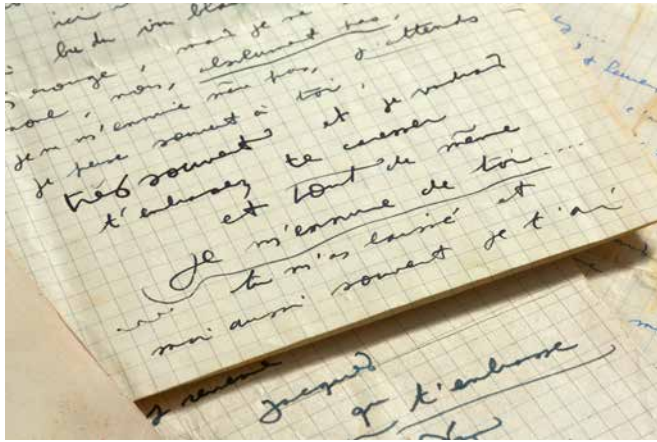 ici
bu du vin blanc
rouge, mais je ne
non, absolument pas,
je ne m'ennuie même pas, j'attends
je pense souvent à toi,
très souvent et je voudrais
t'embrasser te caresser
et tout de même
je m'ennuie de toi ....
... tu m'as laissé et
moi aussi souvent je t'ai
Jacques
qui t'embrasse